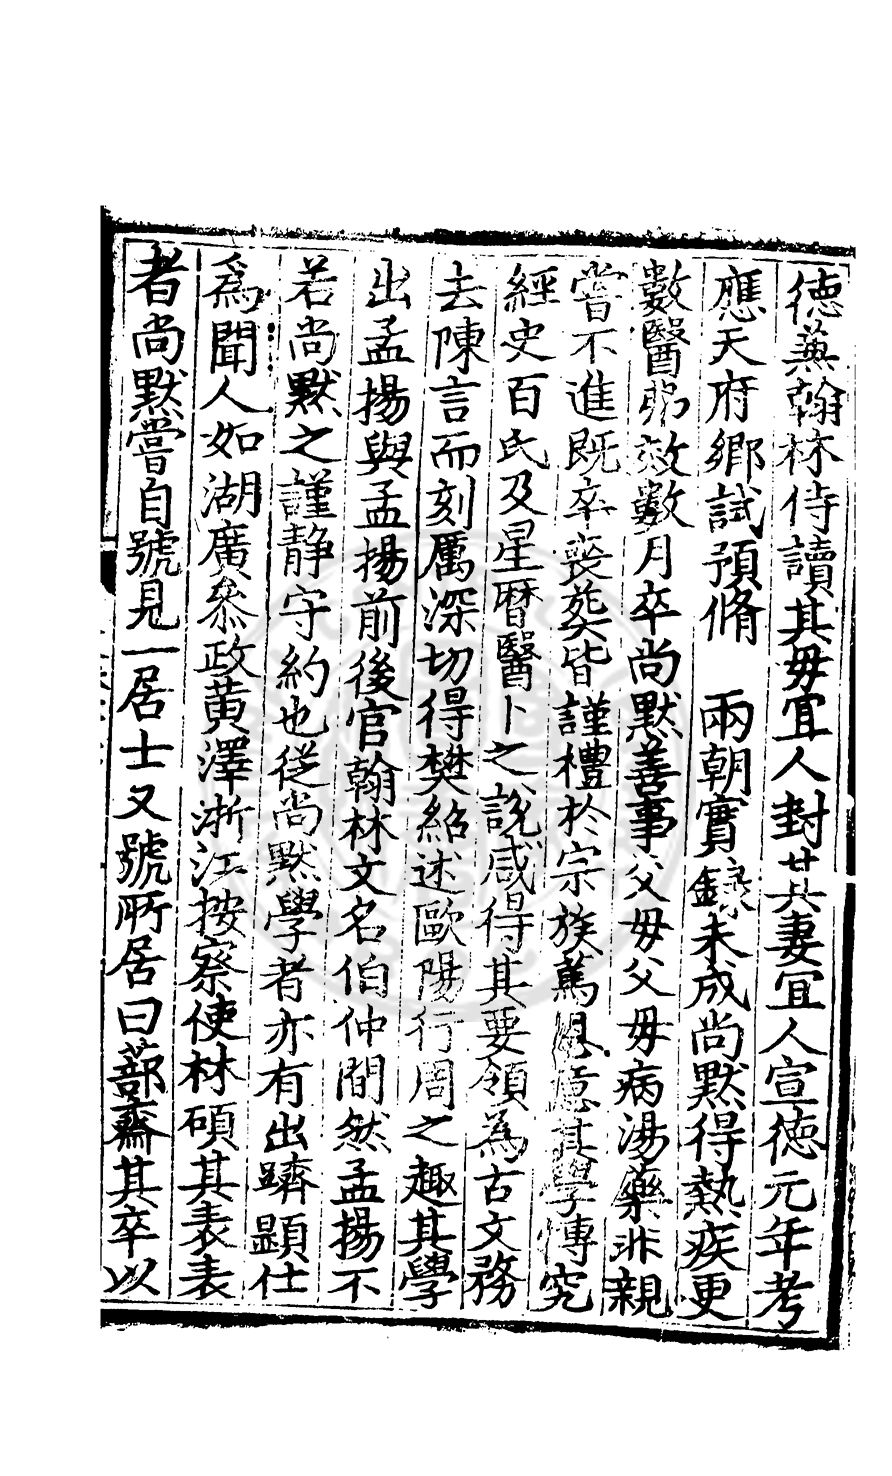 德兼翰林侍讀其母宜人封廿其妻宜人宣徳元年考
應天府鄉試預脩　兩朝實錄未成尚默得熱疾更
數醫弗效數月卒尚默善事父毋父毋病湯藥非親
嘗不進既卒喪葬皆謹禮於宗族篤恩意其學博究
經史百氏及星暦醫卜之說咸得其要領為古文務
去陳言而刻厲深切得樊紹述歐陽行周之趣其學
出孟揚與孟揚前後官翰林文名伯仲間然孟揚不
若尚默之謹静守約也從尚默學者亦有出躋顯仕
爲聞人如湖廣叅政黄澤浙江按察使林碩其表表
者尚默嘗自號見一居士又號所居曰蔀齋其卒以